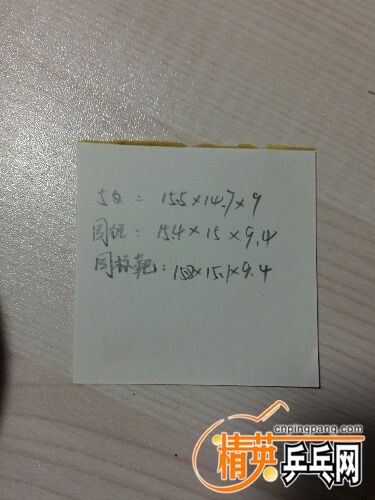 5B: 15.5×14.7×9
同红: 15.4×15×9.4
同标靶: 15.2×15.1×9.4
cnpingpang.com
精英乒乓网